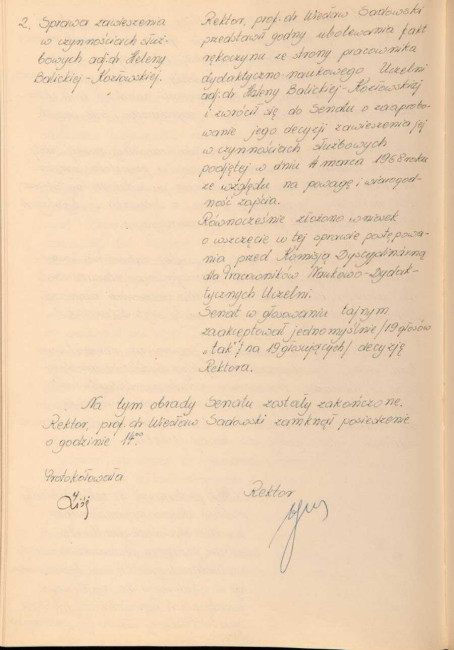 2. Sprawa zawieszenia
w czynnościach służ-
bowych adj. dr. Heleny
Balickiej-Kozłowskiej.
Rektor, prof. dr Wiesław Sadowski
przedstawił godny ubolewania fakt
rękoczynu ze strony pracownika
dydaktyczno-naukowego Uczelni
adj. dr Heleny Balickiej-Kozłowskiej
i zwrócił się do Senatu o zaaprobo-
wanie jego decyzji zawieszenia jej
w czynnościach służbowych
podjętej w dniu 4 marca 1968 roku
ze względu na powagę i wiarogod-
ność zajścia.
Równocześnie złożono wniosek
o wszczęcie w tej sprawie postępowa-
nia przed Komisją Dyscyplinarną
dla Pracowników Naukowo-Dydak-
tycznych Uczelni.
Senat w głosowaniu tajnym
zaakceptował jednomyślnie /19 głosów
„tak" na 19 głosujących/ decyzję
Rektora.
Na tym obrady Senatu zostały zakończone.
Rektor, prof. dr Wiesław Sadowski zamknął posiedzenie
o godzinie 14⁰⁰.
Protokołowała
Rektor